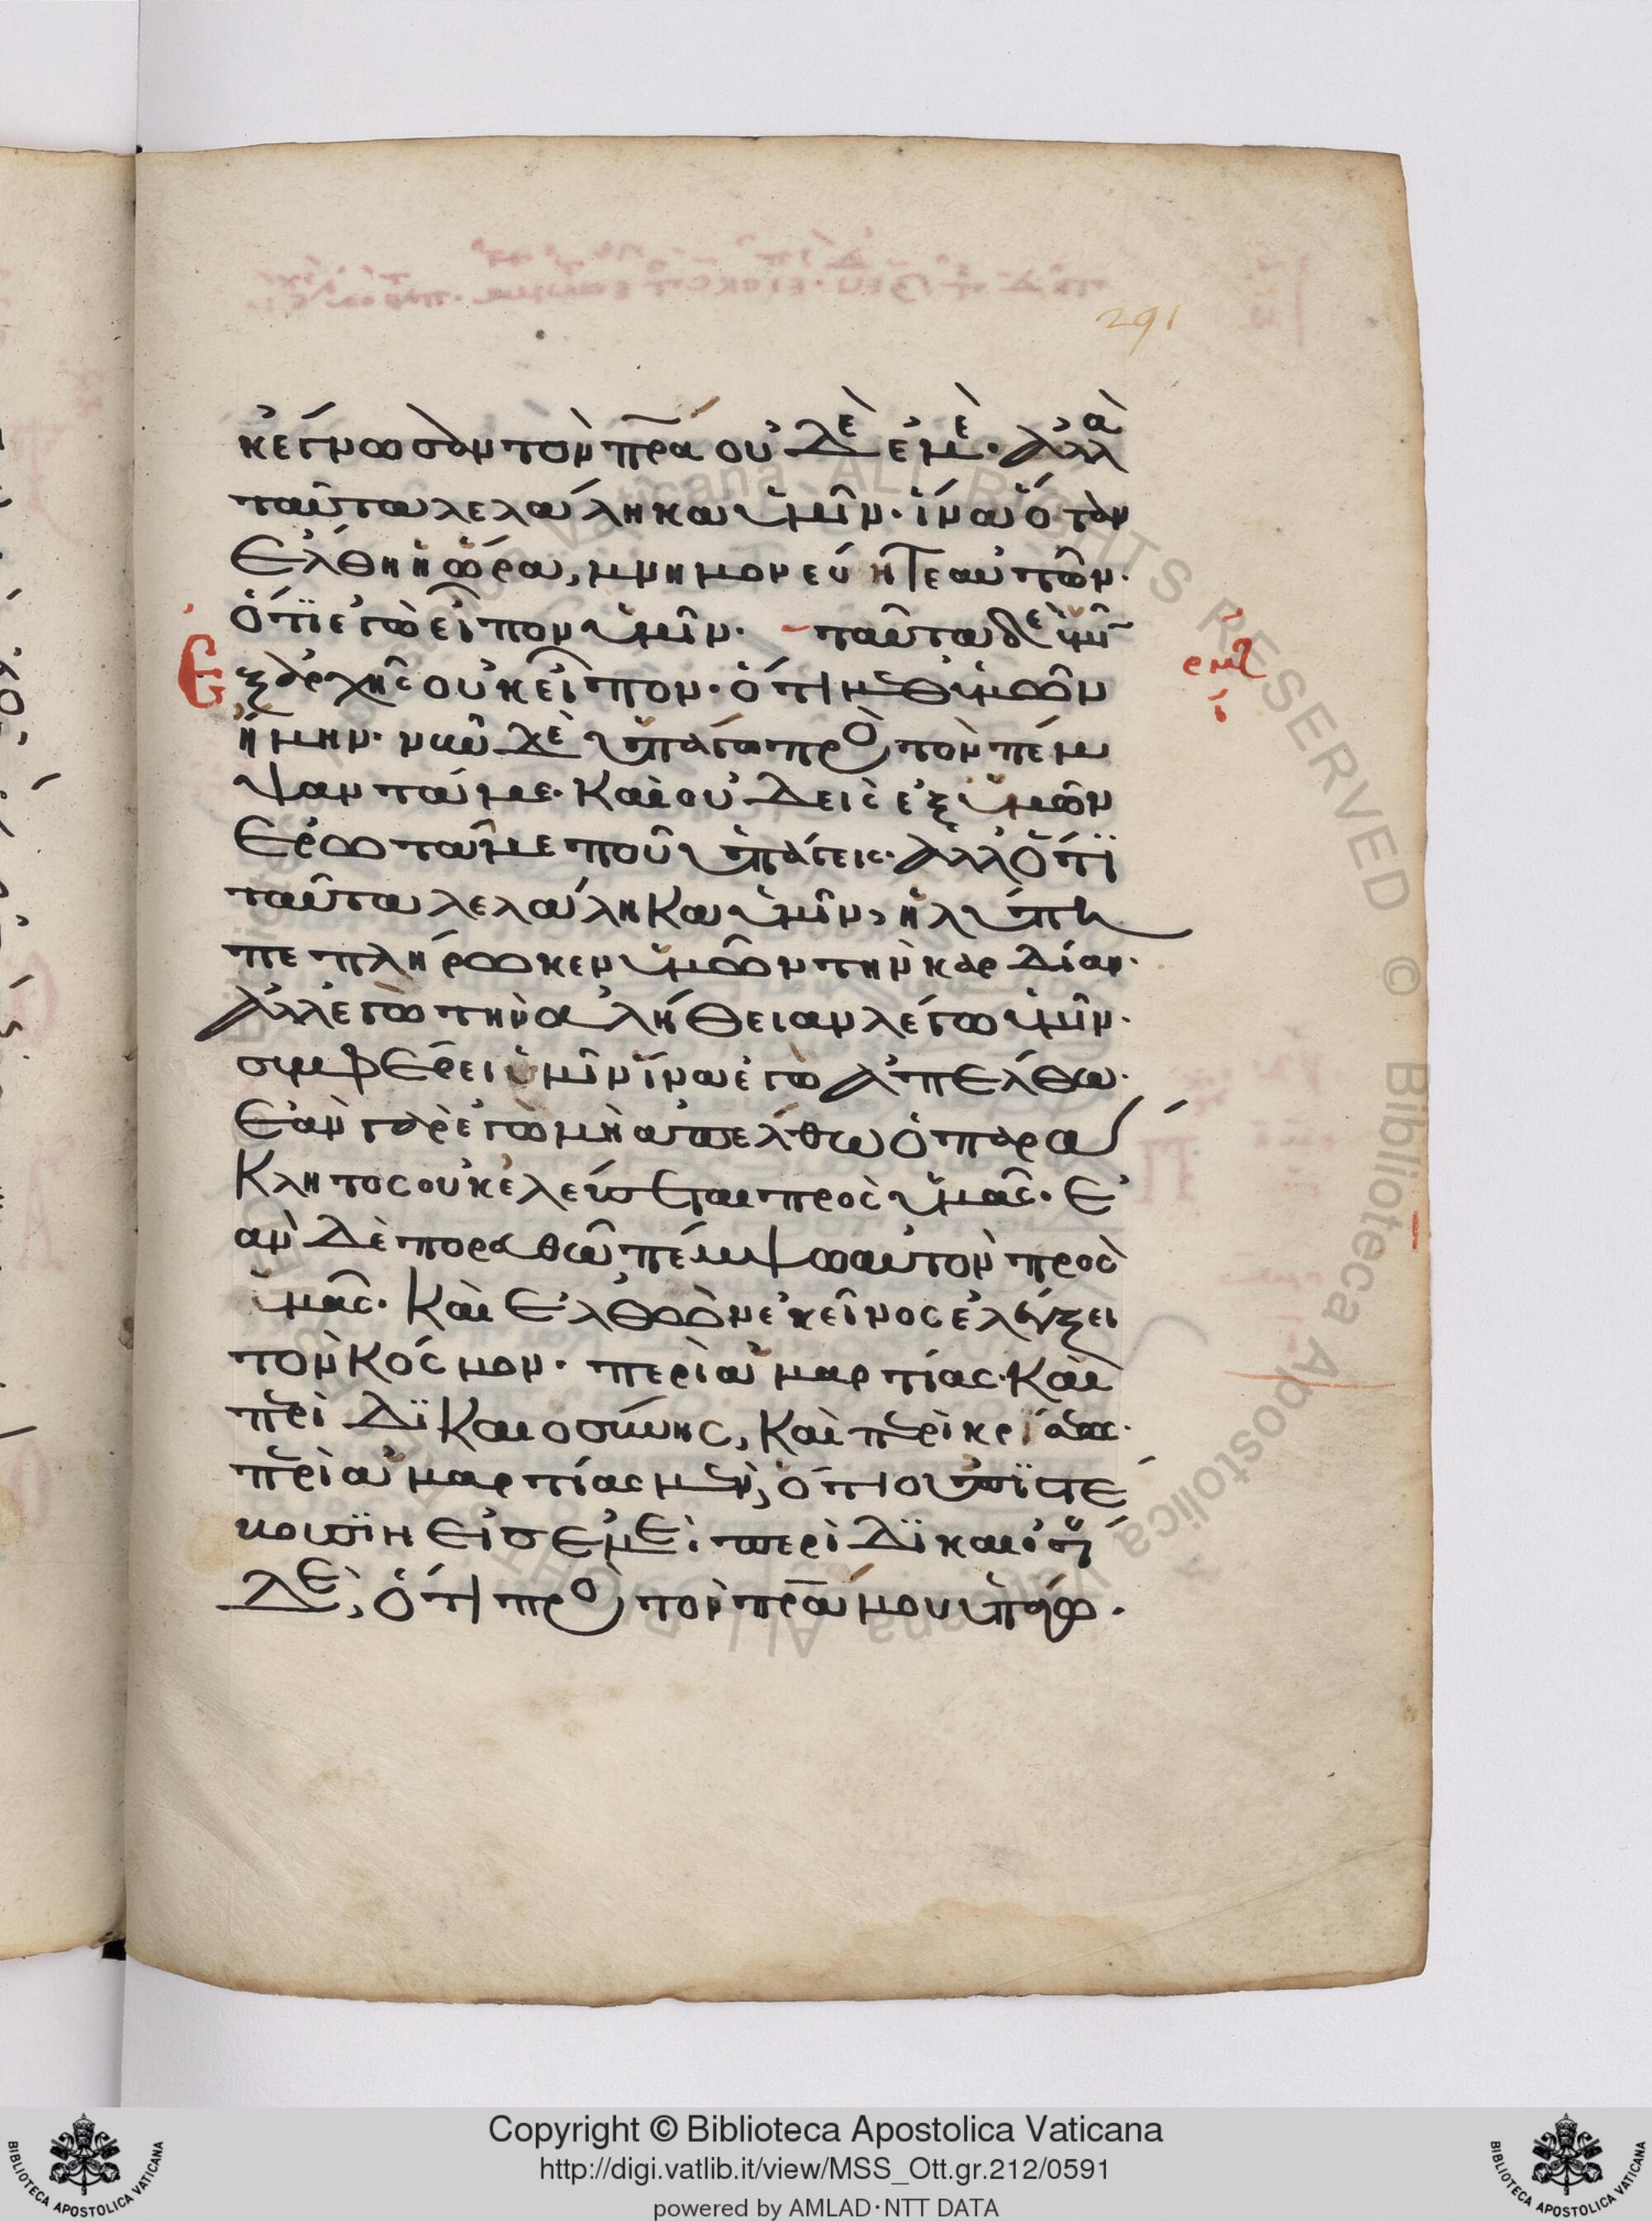 291
κἔγνωσαν τὸν πρ̅α οὐδὲ ἐμὲ· ἀλλὰ
ταῦτα λελάληκα ὑμῖν· ἵνα ὅταν
ἔλθη ἡ ὥρα, μνημονεύητε αὐτῶν·
ὅτϊ ἐγὼ εἶπον ὑμῖν· ταῦτα δὲ ὑμῖ̅
ἐξαρχῆς οὐκ εἶπον· ὅτι μεθ ὑμῶν
ἤμην· νῦν δὲ ὑπάγω πρὸ τὸν πέμ
ψαντά με· Καὶ οὐδεὶς ἐξ ὑμῶν
ἐρωτᾶ με ποῦ ὑπάγεις· ἀλλ ὅτϊ
ταῦτα λελάληκα ὑμῖν, ἡ λύπη
πεπλήρωκεν ὑμῶν τὴν καρδίαν·
ἀλλ ἐγὼ τὴν ἀλήθειαν λέγω ὑμῖν·
συμφέρει ὑμῖν ἵνα ἐγὼ ἀπέλθω·
ἐὰν γὰρ ἐγὼ μὴ ἀπέλθω ὁ παρά
κλητος οὐκ ἐλεύσεται πρὸς ὑμᾶς· ἐ
ὰν δὲ πορευθῶ, πέμψω αὐτὸν πρὸς
ὑμᾶς· Καὶ ἐλθὼν ἐκεῖνος ἐλέγξει
τὸν Κόσμον· περὶ ἁμαρτίας· Καὶ
περὶ δϊκαιοσύνης, Καὶ περὶ κρίσεως·
περὶ ἁμαρτίας μὲν, ὅτι οὐ πϊστέ
υουσϊν εἰς ἐμέ· περὶ δϊκαιό
δὲ, ὅτι πρὸ τὸν πρ̅α μου ὑπάγω·
ρμζ
ι
Copyright © Biblioteca Apostolica Vaticana
http://digi.vatlib.it/view/MSS_Ott.gr.212/0591
powered by AMLAD·NTT DATA
BIBLIOTECA APOSTOLICA VATICANA
BIBLIOTECA APOSTOLICA VATICANA